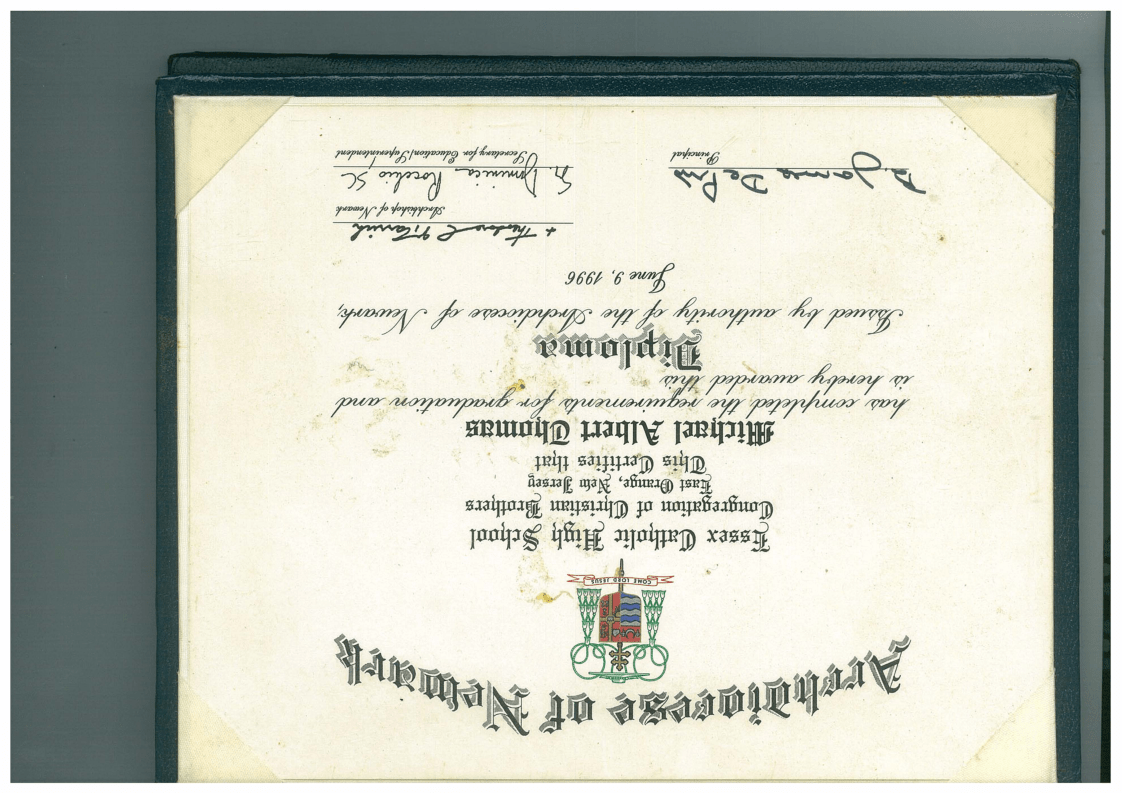 Archdiocese of Newark
COME LORD JESUS
Essex Catholic High School
Congregation of Christian Brothers
East Orange, New Jersey
This Certifies that
Michael Albert Thomas
has completed the requirements for graduation and
is hereby awarded this
Diploma
Issued by authority of the Archdiocese of Newark,
June 9, 1996
+ Theodore E McCarrick
Archbishop of Newark
Sr. Dominica Rocchio SC
Principal
Secretary for Education/Superintendent